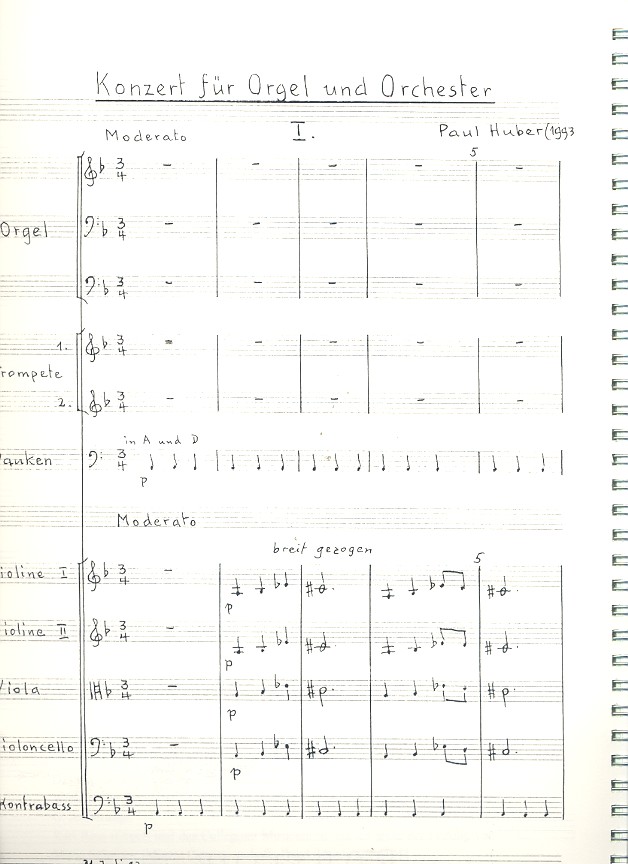 Konzert für Orgel und Orchester
I.
Moderato
Paul Huber (1993
5
Orgel
1.
rompete
2.
in A und D
auken
p
Moderato
breit gezogen
5
ioline I
p
ioline II
p
Viola
p
ioloncello
p
Kontrabass
p